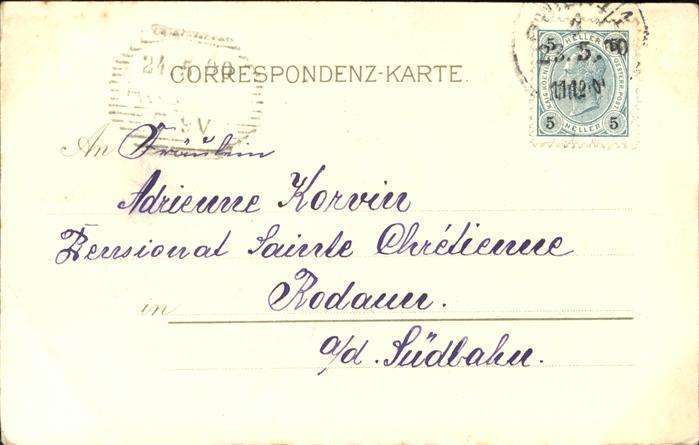 24.5.00
CORRESPONDENZ-KARTE.
5 HELLER
23.5.00
5 HELLER 5
V
An Fräulein
Adrienne Korvin
Pensionat Sainte Chrétienne
in Rodaun.
a/d. Südbahn.